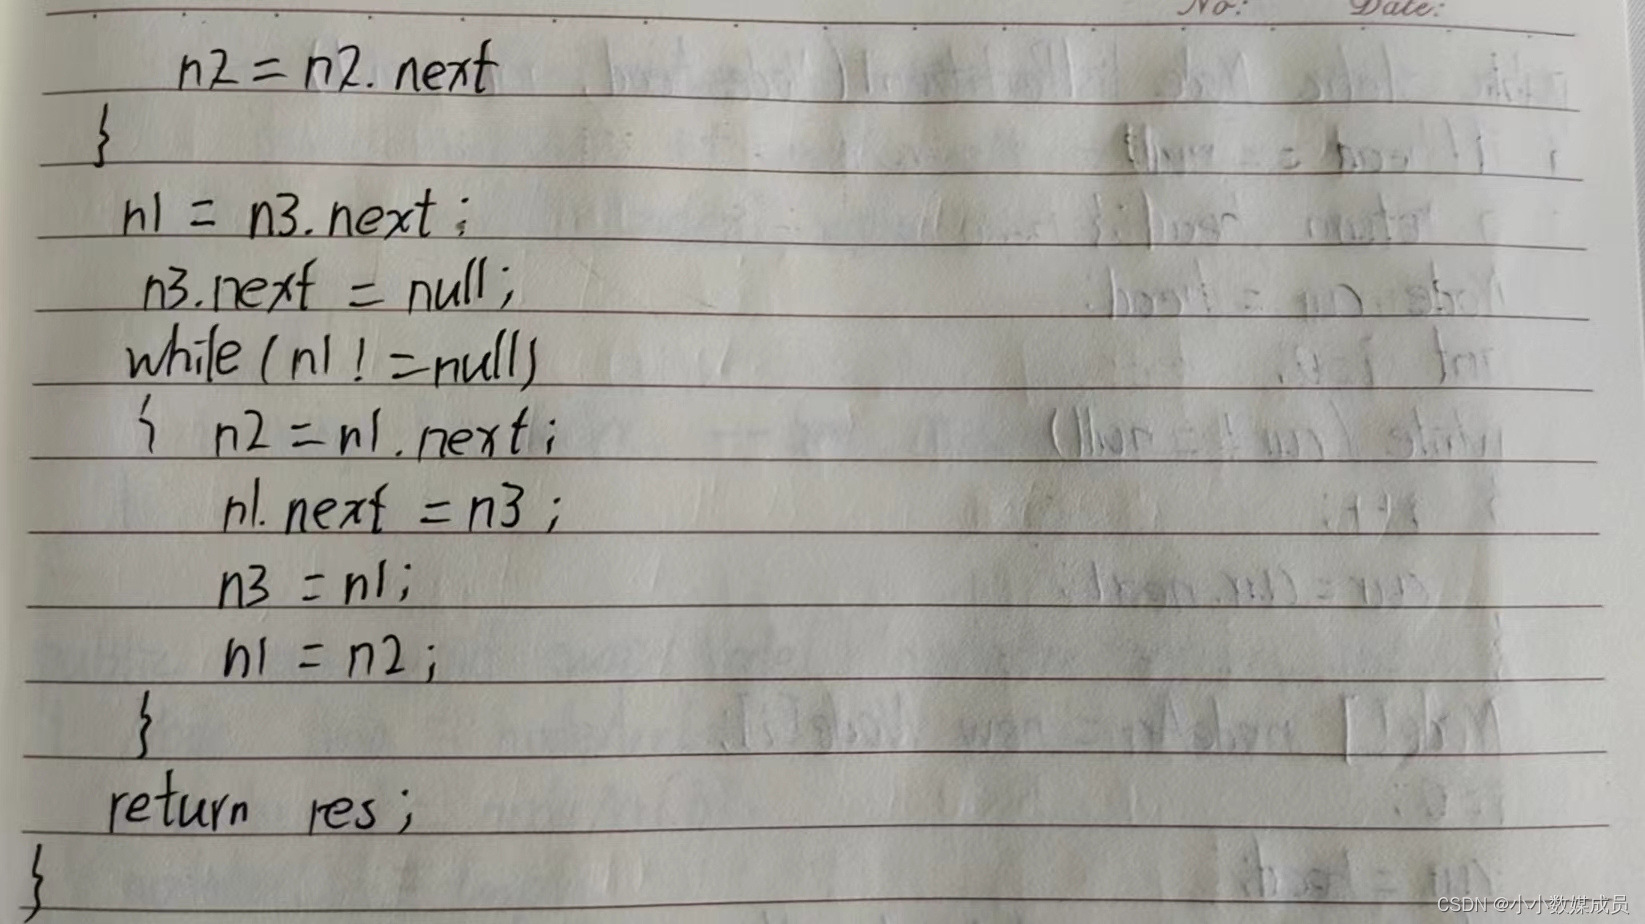 No: Date:
n2 = n2. next
}
n1 = n3. next ;
n3. next = null ;
while ( n1 ! = null )
{ n2 = n1 . next ;
n1. next = n3 ;
n3 = n1 ;
n1 = n2 ;
}
return res ;
}
CSDN @小小数媒成员